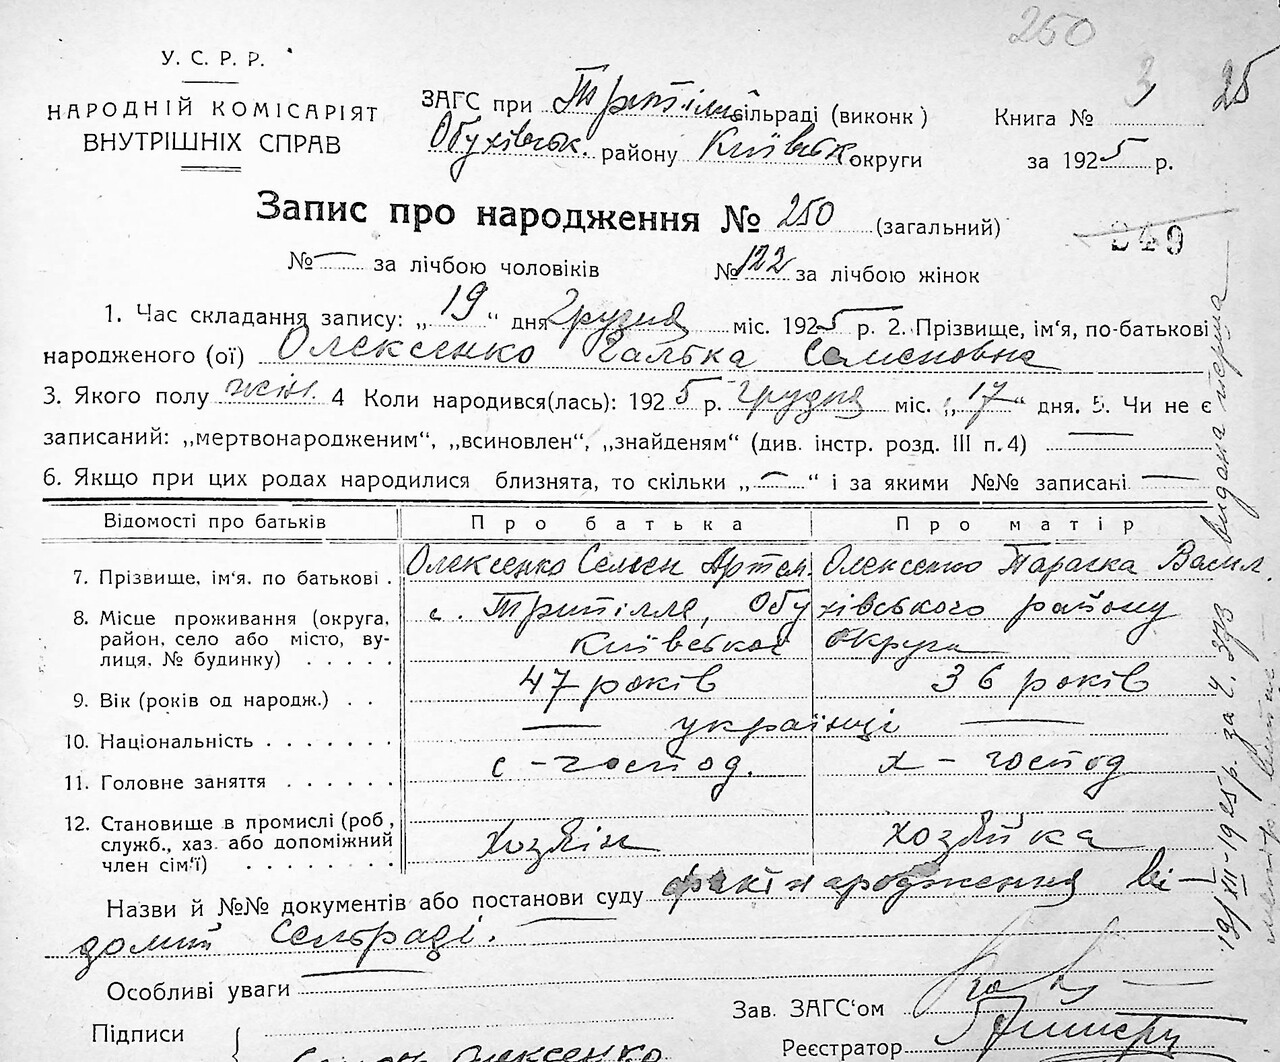 250
У. С. Р. Р.
НАРОДНІЙ КОМІСАРІЯТ
ВНУТРІШНІХ СПРАВ
ЗАГС при Трипільс. сільраді (виконк)
Обухівськ. району Київськ округи
Книга № 3 25
за 1925 р.
Запис про народження № 250 (загальний)
249
№ — за лічбою чоловіків № 122 за лічбою жінок
1. Час складання запису: „19“ дня Грудня міс. 1925 р. 2. Прізвище, ім'я, по-батькові
народженого (ої) Олексенко Галька Семеновна
3. Якого полу жін. 4 Коли народився(лась): 1925 р. Грудня міс. „17“ дня. 5. Чи не є
записаний: „мертвонародженим“, „всиновлен“, „знайденям“ (див. інстр. розд. III п. 4) —
6. Якщо при цих родах народилися близнята, то скільки „—“ і за якими №№ записані —
Відомості про батьків Про батька Про матір
7. Прізвище, ім'я. по батькові . Олексенко Семен Артем. Олексенко Параска Васил.
8. Місце проживання (округа, с. Трипілля, Обухівського району
район, село або місто, ву- Київської округи
лиця, № будинку) . . . . .
9. Вік (років од народж.) . . 47 років 36 років
10. Національність . . . . . . . — українці —
11. Головне заняття . . . . . . с-господ. х-господ
12. Становище в промислі (роб,
служб., хаз. або допоміжний Хозяїн хозяйка
член сім'ї) . . . . . . . .
Назви й №№ документів або постанови суду факт народження ві-
домий Сельраді.
Особливі уваги —
Зав. ЗАГС'ом
Підписи
Реєстратор
Олексенко
19/XII-1925 р. за Ч. 373 видана